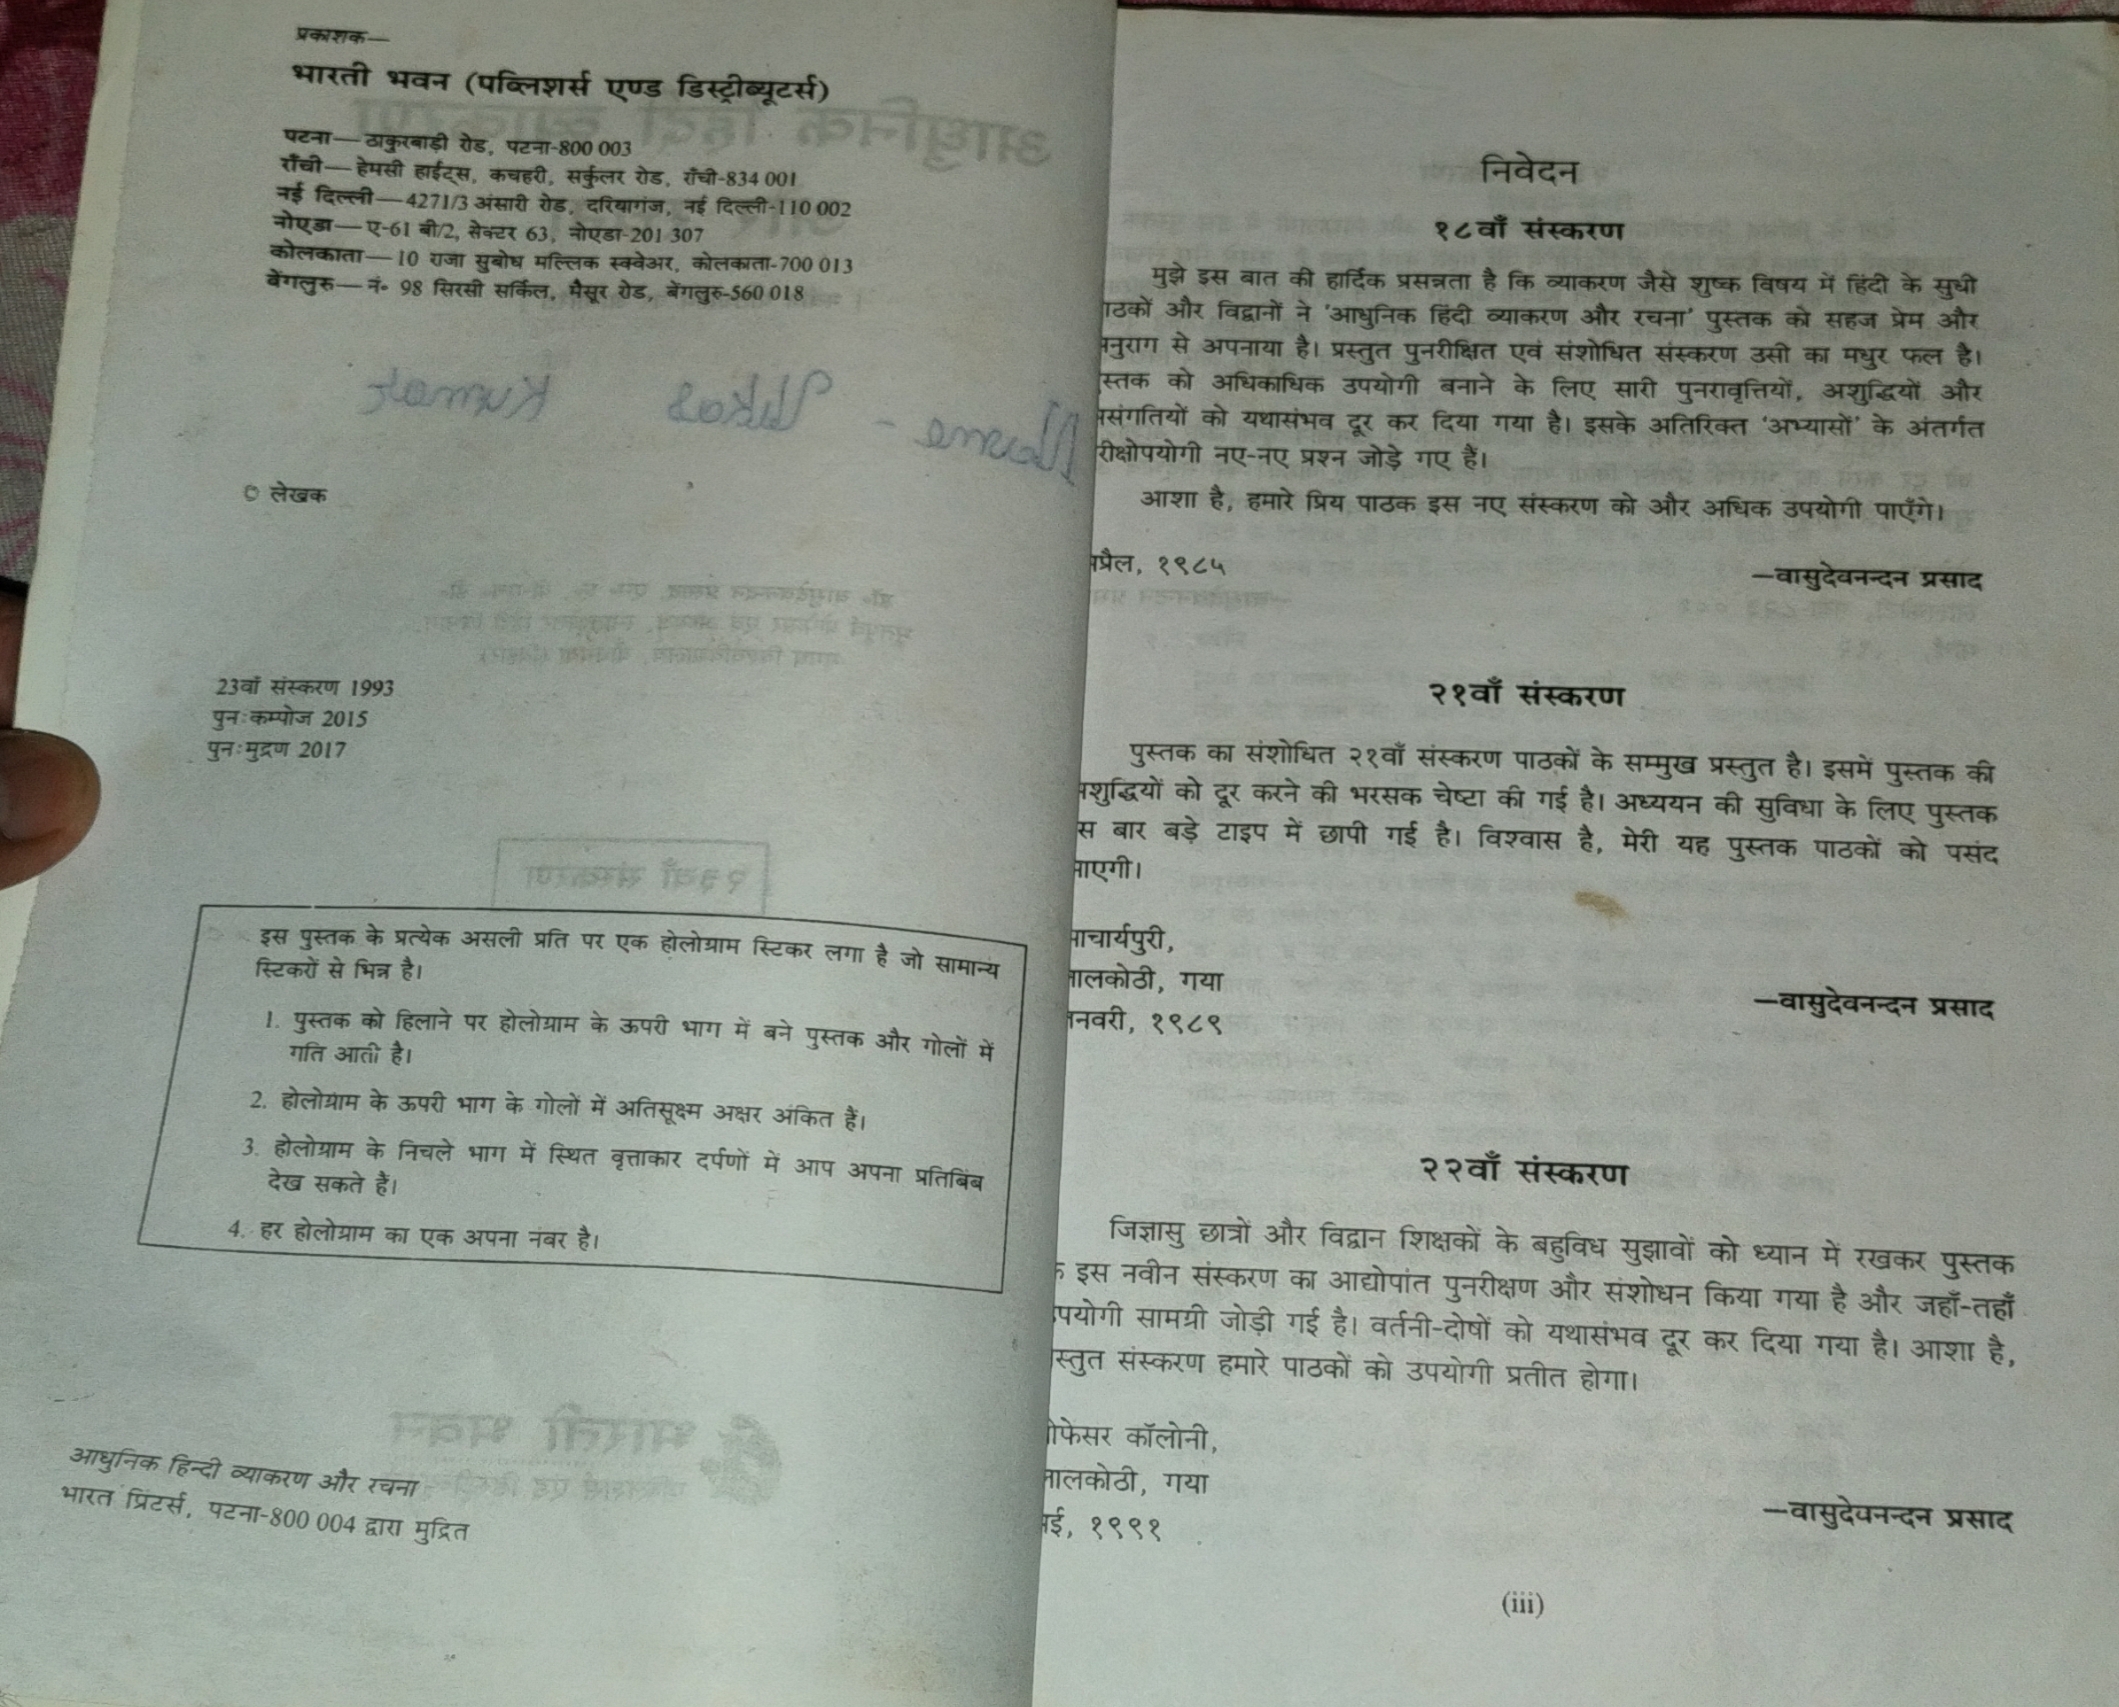 प्रकाशक—
भारती भवन (पब्लिशर्स एण्ड डिस्ट्रीब्यूटर्स)
पटना—ठाकुरबाड़ी रोड, पटना-800 003
राँची—हेमसी हाईट्स, कचहरी, सर्कुलर रोड, राँची-834 001
नई दिल्ली—4271/3 अंसारी रोड, दरियागंज, नई दिल्ली-110 002
नोएडा—ए-61 बी/2, सेक्टर 63, नोएडा-201 307
कोलकाता—10 राजा सुबोध मल्लिक स्क्वेअर, कोलकाता-700 013
बेंगलुरु—नं॰ 98 सिरसी सर्किल, मैसूर रोड, बेंगलुरु-560 018
© लेखक
23वाँ संस्करण 1993
पुनःकम्पोज 2015
पुनःमुद्रण 2017
इस पुस्तक के प्रत्येक असली प्रति पर एक होलोग्राम स्टिकर लगा है जो सामान्य
स्टिकरों से भिन्न है।
1. पुस्तक को हिलाने पर होलोग्राम के ऊपरी भाग में बने पुस्तक और गोलों में
गति आती है।
2. होलोग्राम के ऊपरी भाग के गोलों में अतिसूक्ष्म अक्षर अंकित हैं।
3. होलोग्राम के निचले भाग में स्थित वृत्ताकार दर्पणों में आप अपना प्रतिबिंब
देख सकते हैं।
4. हर होलोग्राम का एक अपना नंबर है।
आधुनिक हिन्दी व्याकरण और रचना
भारत प्रिंटर्स, पटना-800 004 द्वारा मुद्रित
निवेदन
१८वाँ संस्करण
मुझे इस बात की हार्दिक प्रसन्नता है कि व्याकरण जैसे शुष्क विषय में हिंदी के सुधी
ाठकों और विद्वानों ने 'आधुनिक हिंदी व्याकरण और रचना' पुस्तक को सहज प्रेम और
नुराग से अपनाया है। प्रस्तुत पुनरीक्षित एवं संशोधित संस्करण उसी का मधुर फल है।
स्तक को अधिकाधिक उपयोगी बनाने के लिए सारी पुनरावृत्तियों, अशुद्धियों और
संगतियों को यथासंभव दूर कर दिया गया है। इसके अतिरिक्त 'अभ्यासों' के अंतर्गत
रीक्षोपयोगी नए-नए प्रश्न जोड़े गए हैं।
आशा है, हमारे प्रिय पाठक इस नए संस्करण को और अधिक उपयोगी पाएँगे।
प्रैल, १९८५
—वासुदेवनन्दन प्रसाद
२१वाँ संस्करण
पुस्तक का संशोधित २१वाँ संस्करण पाठकों के सम्मुख प्रस्तुत है। इसमें पुस्तक की
शुद्धियों को दूर करने की भरसक चेष्टा की गई है। अध्ययन की सुविधा के लिए पुस्तक
स बार बड़े टाइप में छापी गई है। विश्वास है, मेरी यह पुस्तक पाठकों को पसंद
ाएगी।
ाचार्यपुरी,
ालकोठी, गया
नवरी, १९८९
—वासुदेवनन्दन प्रसाद
२२वाँ संस्करण
जिज्ञासु छात्रों और विद्वान शिक्षकों के बहुविध सुझावों को ध्यान में रखकर पुस्तक
इस नवीन संस्करण का आद्योपांत पुनरीक्षण और संशोधन किया गया है और जहाँ-तहाँ
पयोगी सामग्री जोड़ी गई है। वर्तनी-दोषों को यथासंभव दूर कर दिया गया है। आशा है,
स्तुत संस्करण हमारे पाठकों को उपयोगी प्रतीत होगा।
ोफेसर कॉलोनी,
ालकोठी, गया
ई, १९९१
—वासुदेवनन्दन प्रसाद
(iii)